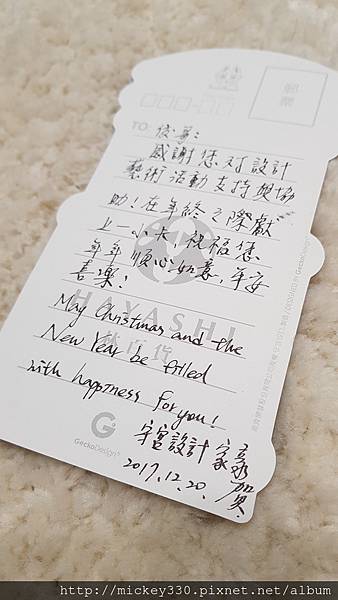 郵票
TO: 俊哥:
感謝您對設計
藝術活動支持與協
助!在年終之際獻
上一小卡,祝福您
年年順心如意,平安
喜樂!
HAYASHI
林百貨
May Christmas and the
New Year be filled
with happiness for you!
GeckoDesign
2017.12.20. 賀
http://mickey330.pixnet.net/album